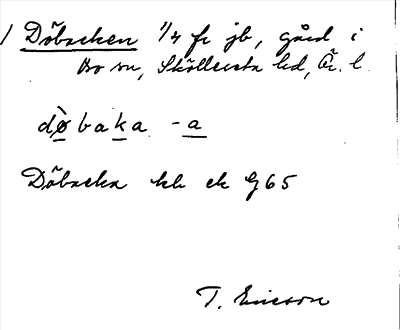 / Döbacken 1/4 fr jb, gård i
Bo sn, Sköllersta hd, Ör. l.
dø̀baka -a
Döbacka hk ek G65
T. Ericson